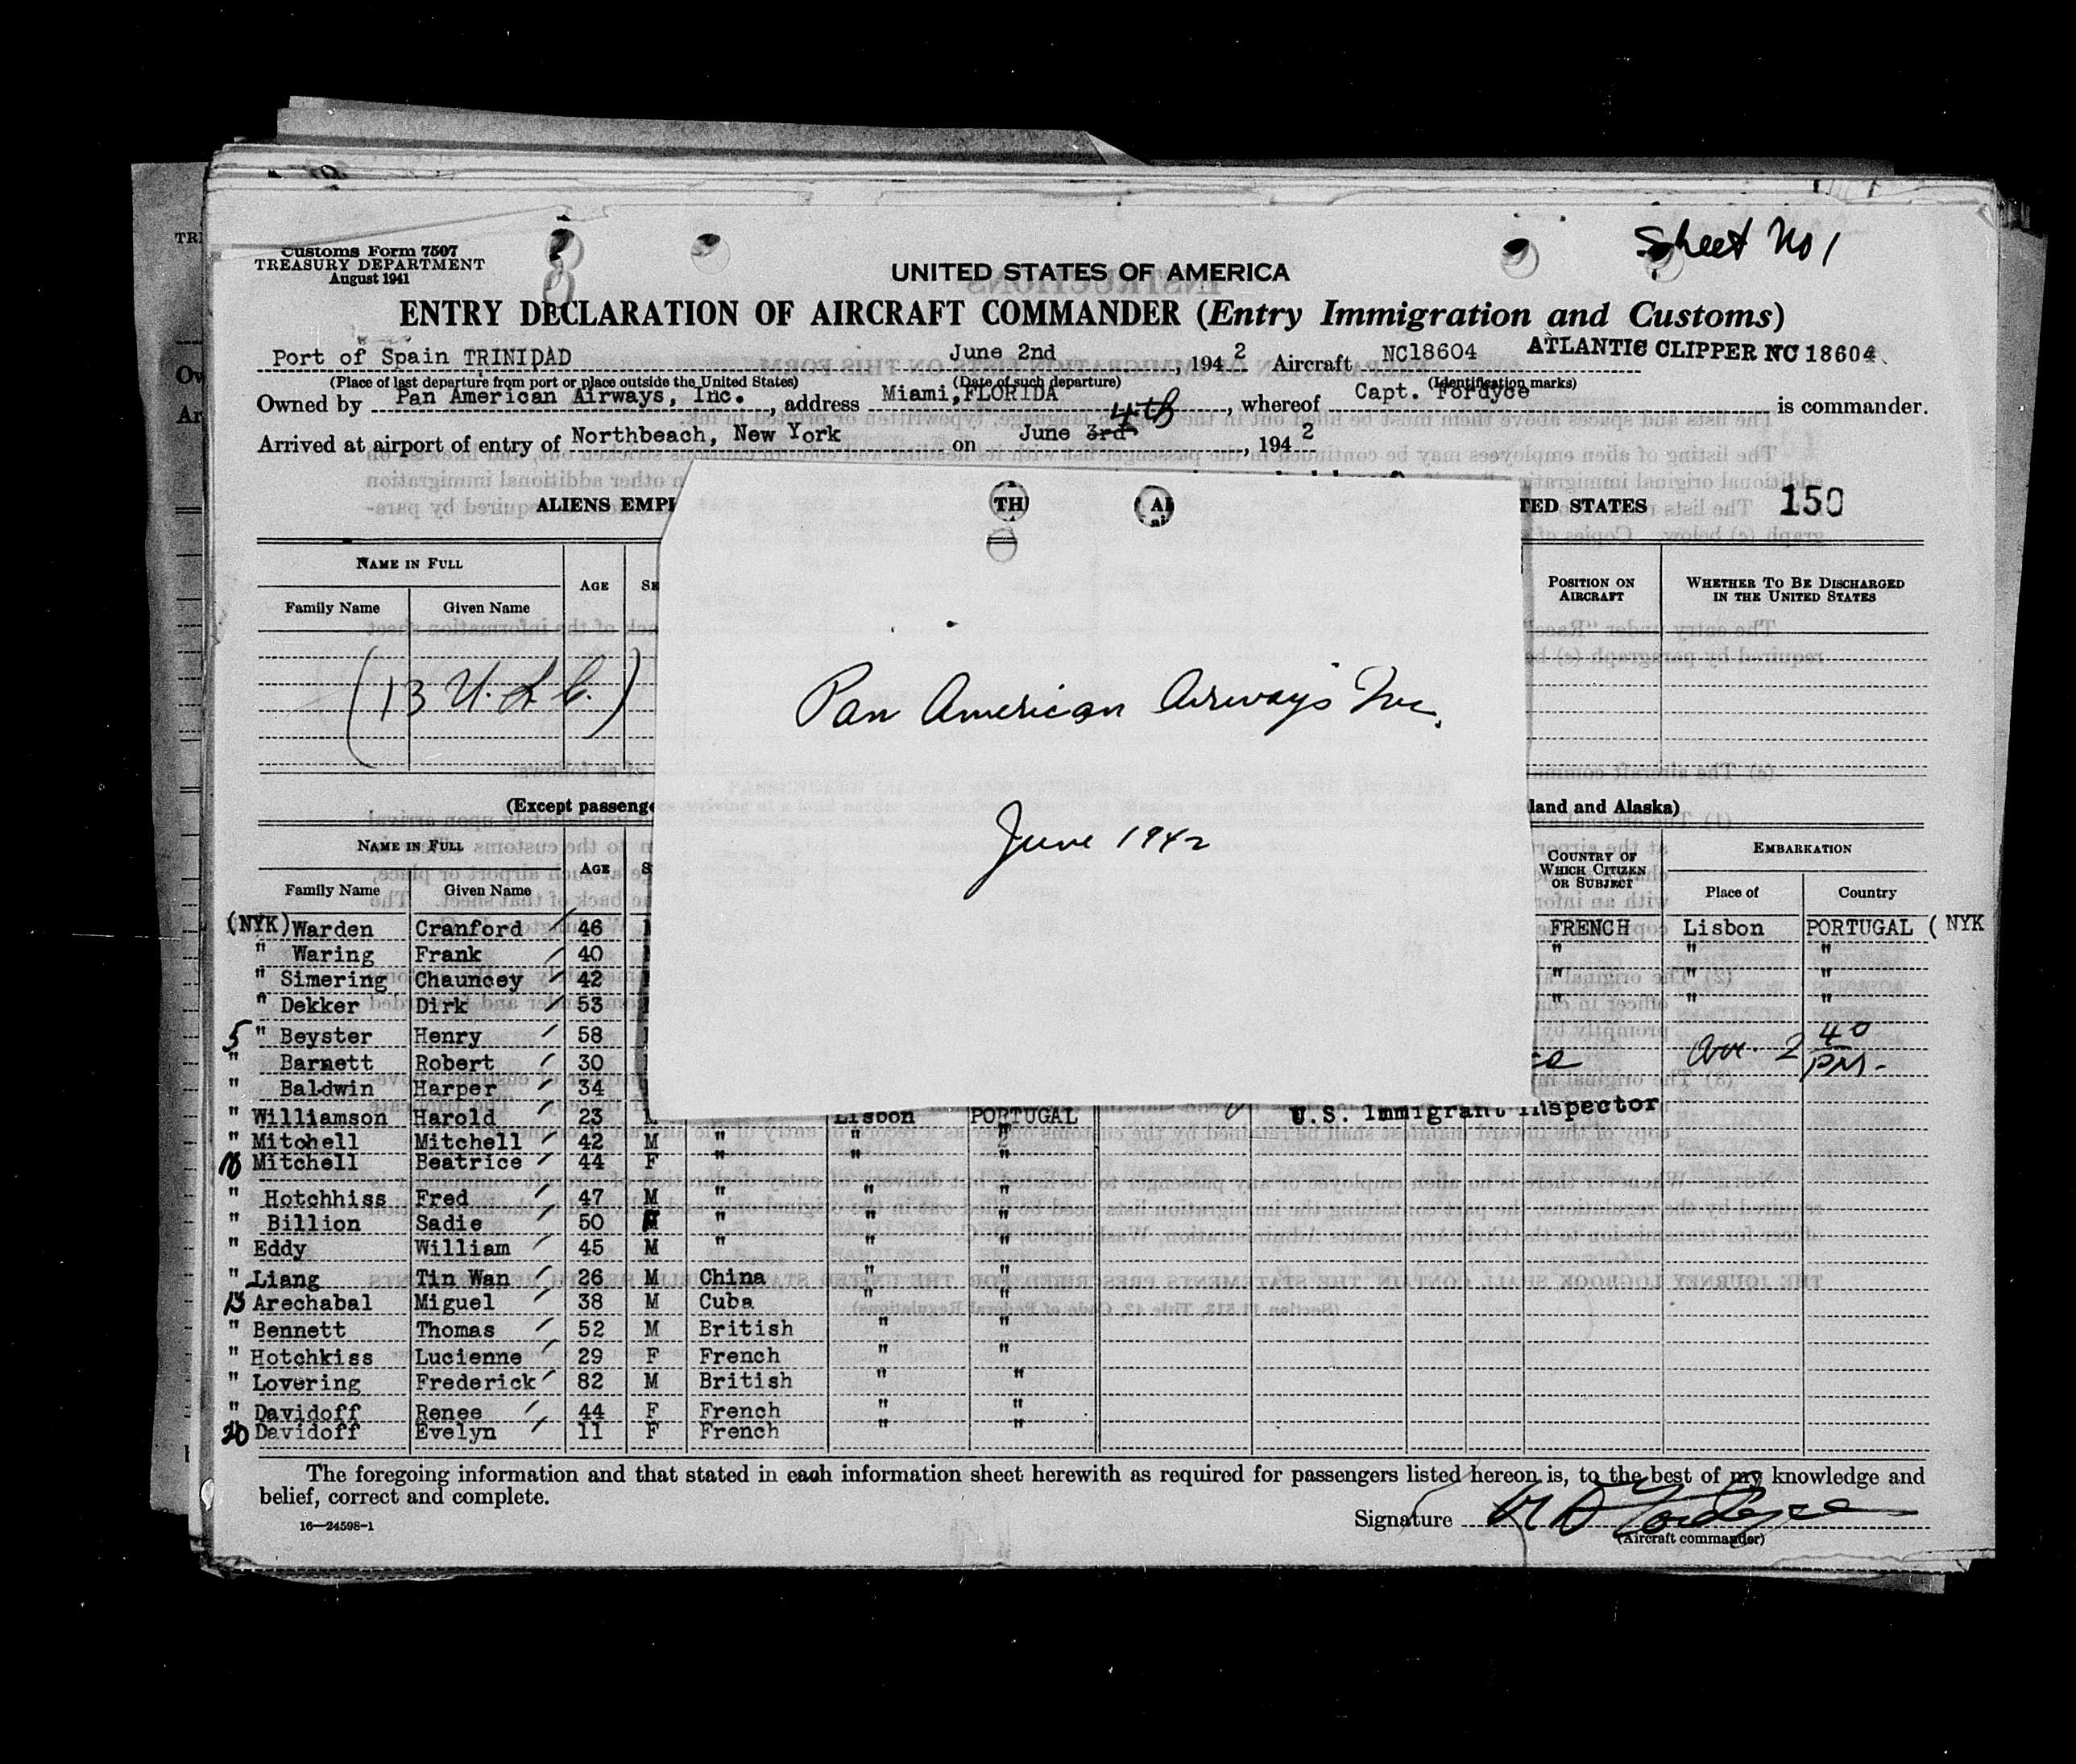 Sheet No 1
Customs Form 7507
TREASURY DEPARTMENT
August 1941
UNITED STATES OF AMERICA
ENTRY DECLARATION OF AIRCRAFT COMMANDER (Entry Immigration and Customs)
Port of Spain TRINIDAD June 2nd, 1942 Aircraft NC18604 ATLANTIC CLIPPER NC 18604
(Place of last departure from port or place outside the United States) (Date of such departure) (Identification marks)
Owned by Pan American Airways, Inc., address Miami, FLORIDA, whereof Capt. Fordyce is commander.
Arrived at airport of entry of Northbeach, New York on June 3rd 4th, 1942
ALIENS EMPL TH AI TED STATES 150
NAME IN FULL AGE SE POSITION ON AIRCRAFT WHETHER TO BE DISCHARGED IN THE UNITED STATES
Family Name Given Name
(13 U.S.C.)
Pan American Airways Inc.
June 1942
(Except passenge land and Alaska)
NAME IN FULL AGE S COUNTRY OF WHICH CITIZEN OR SUBJECT EMBARKATION
Family Name Given Name Place of Country
(NYK) Warden Cranford 46 FRENCH Lisbon PORTUGAL (NYK
" Waring Frank 40 " " "
" Simering Chauncey 42 " " "
" Dekker Dirk 53 " " "
5 " Beyster Henry 58
" Barnett Robert 30 Arr. 2 40 PM-
" Baldwin Harper 34
" Williamson Harold 23 Lisbon PORTUGAL U.S. Immigrant Inspector
" Mitchell Mitchell 42 M " " "
10 Mitchell Beatrice 44 F " " "
" Hotchhiss Fred 47 M " " "
" Billion Sadie 50 F " " "
" Eddy William 45 M " " "
" Liang Tin Wan 26 M China " "
15 Arechabal Miguel 38 M Cuba " "
" Bennett Thomas 52 M British " "
" Hotchkiss Lucienne 29 F French " "
" Lovering Frederick 82 M British " "
" Davidoff Renee 44 F French " "
20 Davidoff Evelyn 11 F French
The foregoing information and that stated in each information sheet herewith as required for passengers listed hereon is, to the best of my knowledge and
belief, correct and complete.
Signature
(Aircraft commander)
16—24598-1